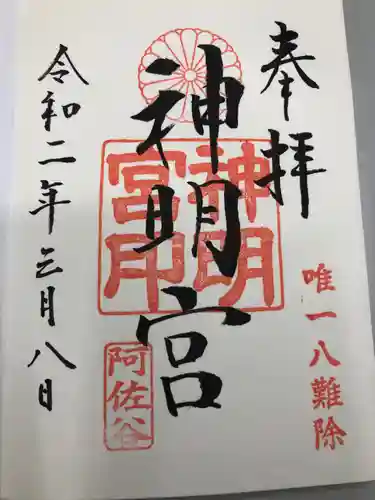 奉拝
唯一八難除
神明宮
神明宮印
阿佐谷
令和二年三月八日